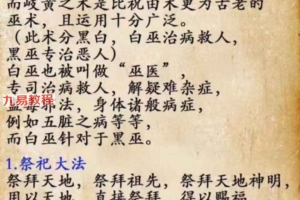 而岐黄之术是比祝由术更为古老的
巫术，且运用十分广泛。
（此术分黑白，白巫治病救人，
黑巫专治恶人）
白巫也被叫做“巫医”，
专司治病救人，解疑难杂症，
蛊毒邪法，身体诸般病症，
例如五脏之病等等，
而白巫针对于黑巫。
九易教程
1.祭祀大法
祭拜天地，祭拜祖先，祭拜天地神明，
用以天地，直接祭拜，得以赐福，